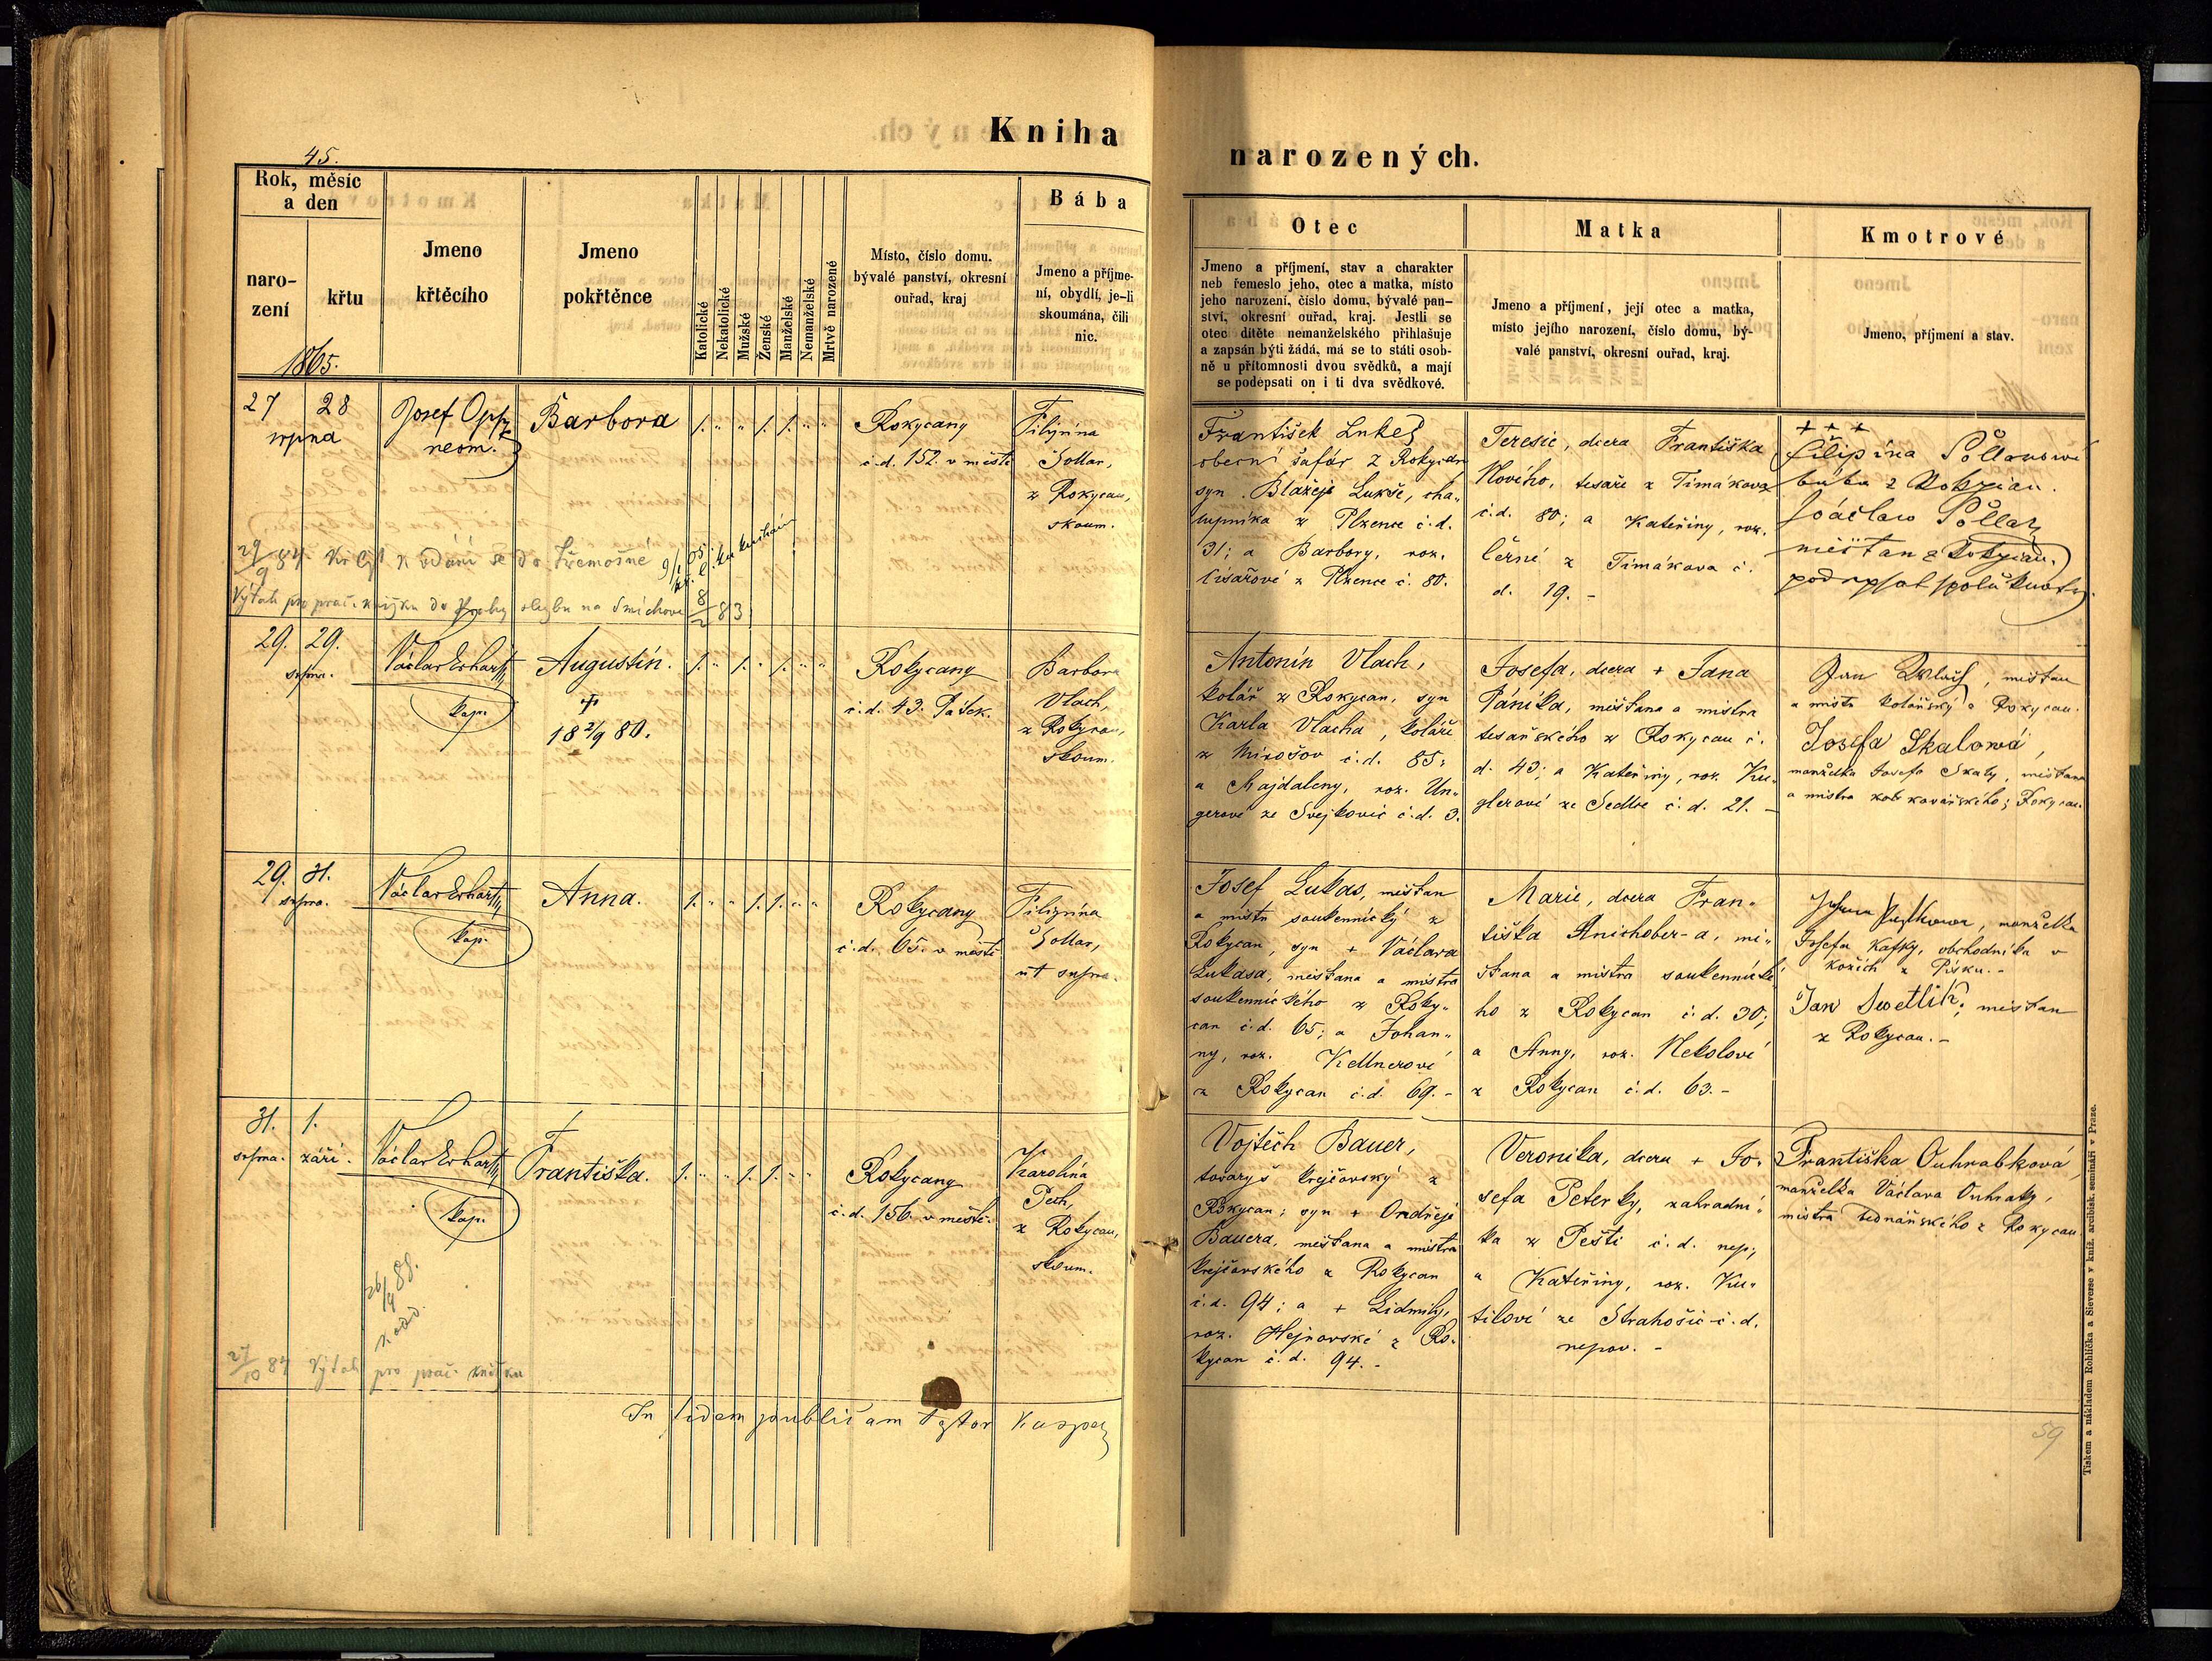 Kniha
narozených.
45.
Rok, měsíc
a den
naro-
zení
křtu
1865.
Jmeno
křtěcího
Jmeno
pokřtěnce
Katolické
Nekatolické
Mužské
Ženské
Manželské
Nemanželské
Mrtvě narozené
Místo, číslo domu.
bývalé panství, okresní
ouřad, kraj
Bába
Jmeno a příjme-
ní, obydlí, je-li
skoumána, čili
nic.
Otec
Jmeno a příjmení, stav a charakter
neb řemeslo jeho, otec a matka, místo
jeho narození, číslo domu, bývalé pan-
ství, okresní ouřad, kraj. Jestli se
otec dítěte nemanželského přihlašuje
a zapsán býti žádá, má se to státi osob-
ně u přítomnosti dvou svědků, a mají
se podepsati on i ti dva svědkové.
Matka
Jmeno a příjmení, její otec a matka,
místo jejího narození, číslo domu, bý-
valé panství, okresní ouřad, kraj.
Kmotrové
Jmeno, příjmení a stav.
27 28
srpna
Josef Opp
neom.
Barbora
1. " " 1. 1. " "
Rokycany
č.d. 152. v městě
Filipina
Sollar,
z Rokycan,
skoum.
František Lukeš
obecní šafář z Rokycan
syn Blažeje Lukše, cha-
lupníka z Plzence č.d.
31; a Barbory, roz.
Císařové z Plzence č. 80.
Teresie, dcera Františka
Nového, tesaře z Timákova
č.d. 80; a Kateřiny, roz.
Černé z Timákova č.
d. 19. -
+++
Filipína
bába z Rokycan.
měšťan z Rokycan.
podepsal spolu
29/9 84. Kř. list k vdání se do Třemošné
Výtah pro prac. knížku do Prahy slezbu na Smíchově 8/2 83
29. 29.
srpna.
Václav Erhart
kap.
Augustín.
18 2/9 80.
1. " 1. " 1. " "
Rokycany
č.d. 43. Pátek.
Barbora
Vlach,
z Rokycan,
skoum.
Antonín Vlach,
kolář z Rokycan, syn
Karla Vlacha, koláře
z Mirošov č.d. 85;
a Majdaleny, roz. Un-
gerové ze Svejkovic č.d. 3.
Josefa, dcera + Jana
Páníka, měšťana a mistra
tesařského z Rokycan č.
d. 43; a Kateřiny, roz. Ku-
glerové ze Sedlce č.d. 21. -
Jan Wlach, měšťan
a mistr kolářský z Rokycan.
Josefa Skalowá,
manželka Josefa Skaly, měšťana
a mistra kovářského z Rokycan.
29. 31.
srpna.
Václav Erhart
kap.
Anna.
1. " " 1. 1. " "
Rokycany
č.d. 65. v městě
Filipina
Sollar,
ut supra.
Josef Lukas, měšťan
a mistr soukennický z
Rokycan, syn + Václava
Lukasa, měšťana a mistra
soukennického z Roky-
can č.d. 65; a Johan-
ny, roz. Kellnerové
z Rokycan č.d. 69. -
Marie, dcera Fran-
tiška Anichober-a, mě-
šťana a mistra soukennické-
ho z Rokycan č.d. 30;
a Anny, roz. Nekolové
z Rokycan č.d. 63. -
manželka
Josefa Kafky, obchodníka v
kožích z Písku. -
Jan Swetlik, měšťan
z Rokycan. -
31. 1.
srpna. září.
Václav Erhart
kap.
Františka.
1. " " 1. 1. " "
Rokycany
č.d. 156. v městě.
Karolína
Peth,
z Rokycan,
skoum.
Vojtěch Bauer,
tovaryš krejčovský z
Rokycan; syn + Ondřeje
Bauera, měšťana a mistra
krejčovského z Rokycan
č.d. 94; a + Lidmily,
roz. Hejrovské z Ro-
kycan č.d. 94. -
Veronika, dcera + Jo-
sefa Peterky, zahradní-
ka z Pešti č.d. nep;
a Kateřiny, roz. Ku-
tilové ze Strahošic č.d.
nepov. -
Františka Ouhrabková,
manželka Václava Ouhrabky,
mistra bednářského z Rokycan
26/4 88.
27/10 84 Výtah pro prac. knížku
In fidem publicam
59
Tiskem a nákladem Rohlíčka a Sieverse v kníž. arcibisk. semináři v Praze.